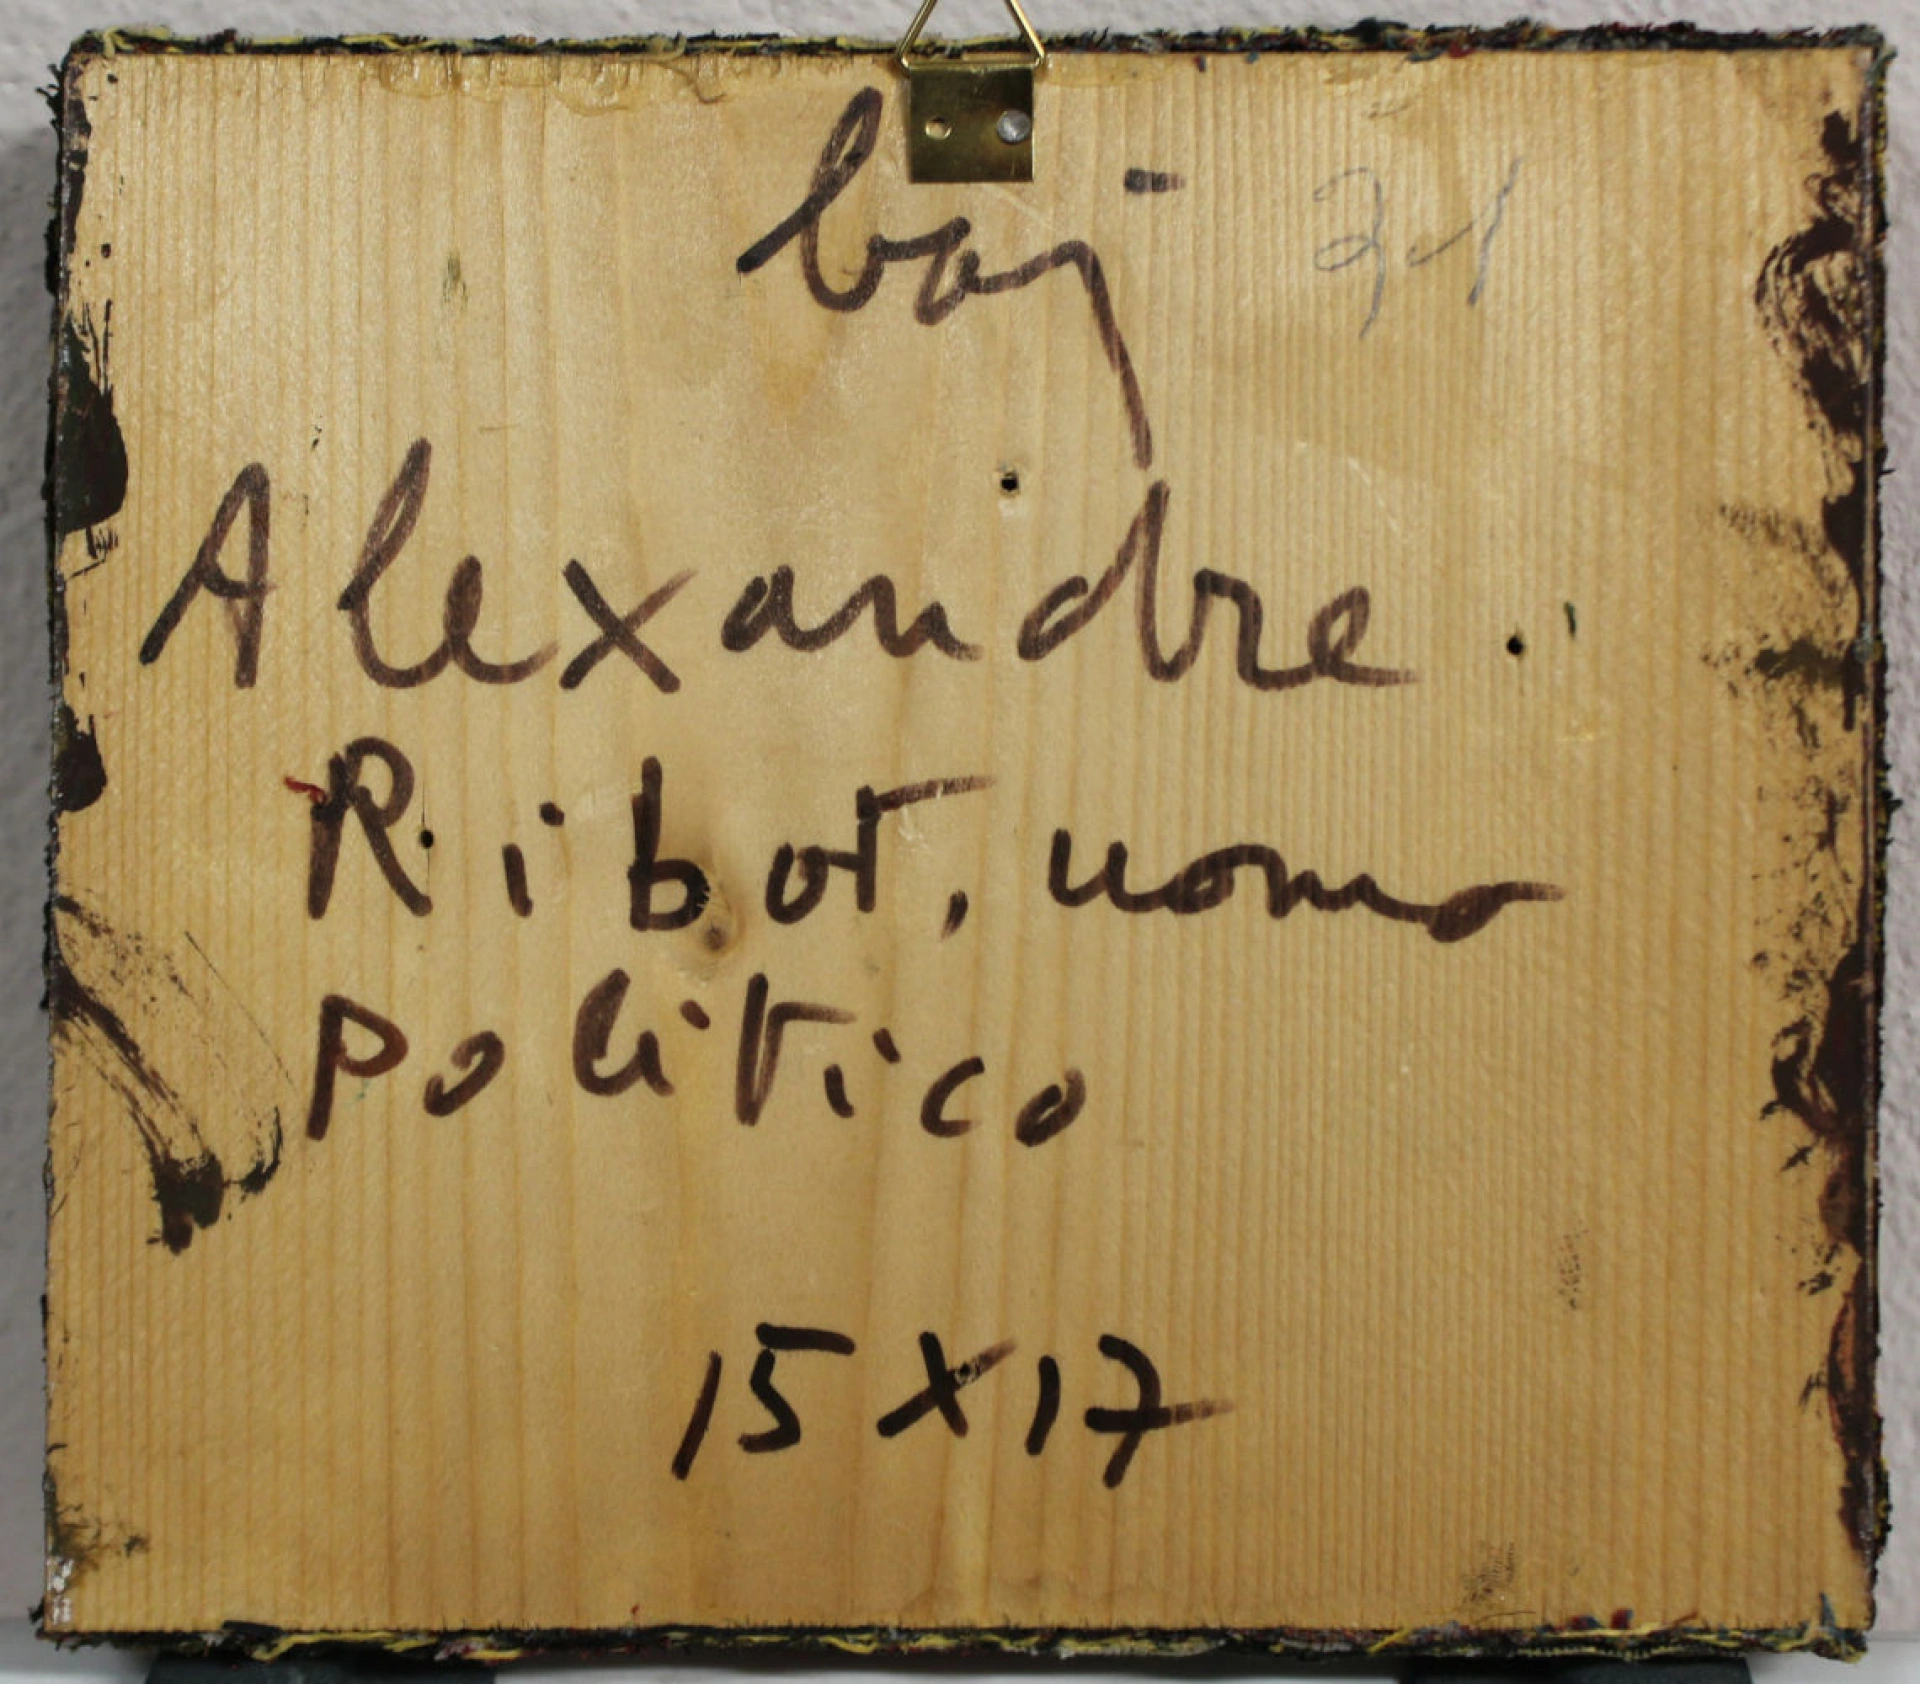 baj
Alexandre
Ribot, uomo
politico
15 X 17